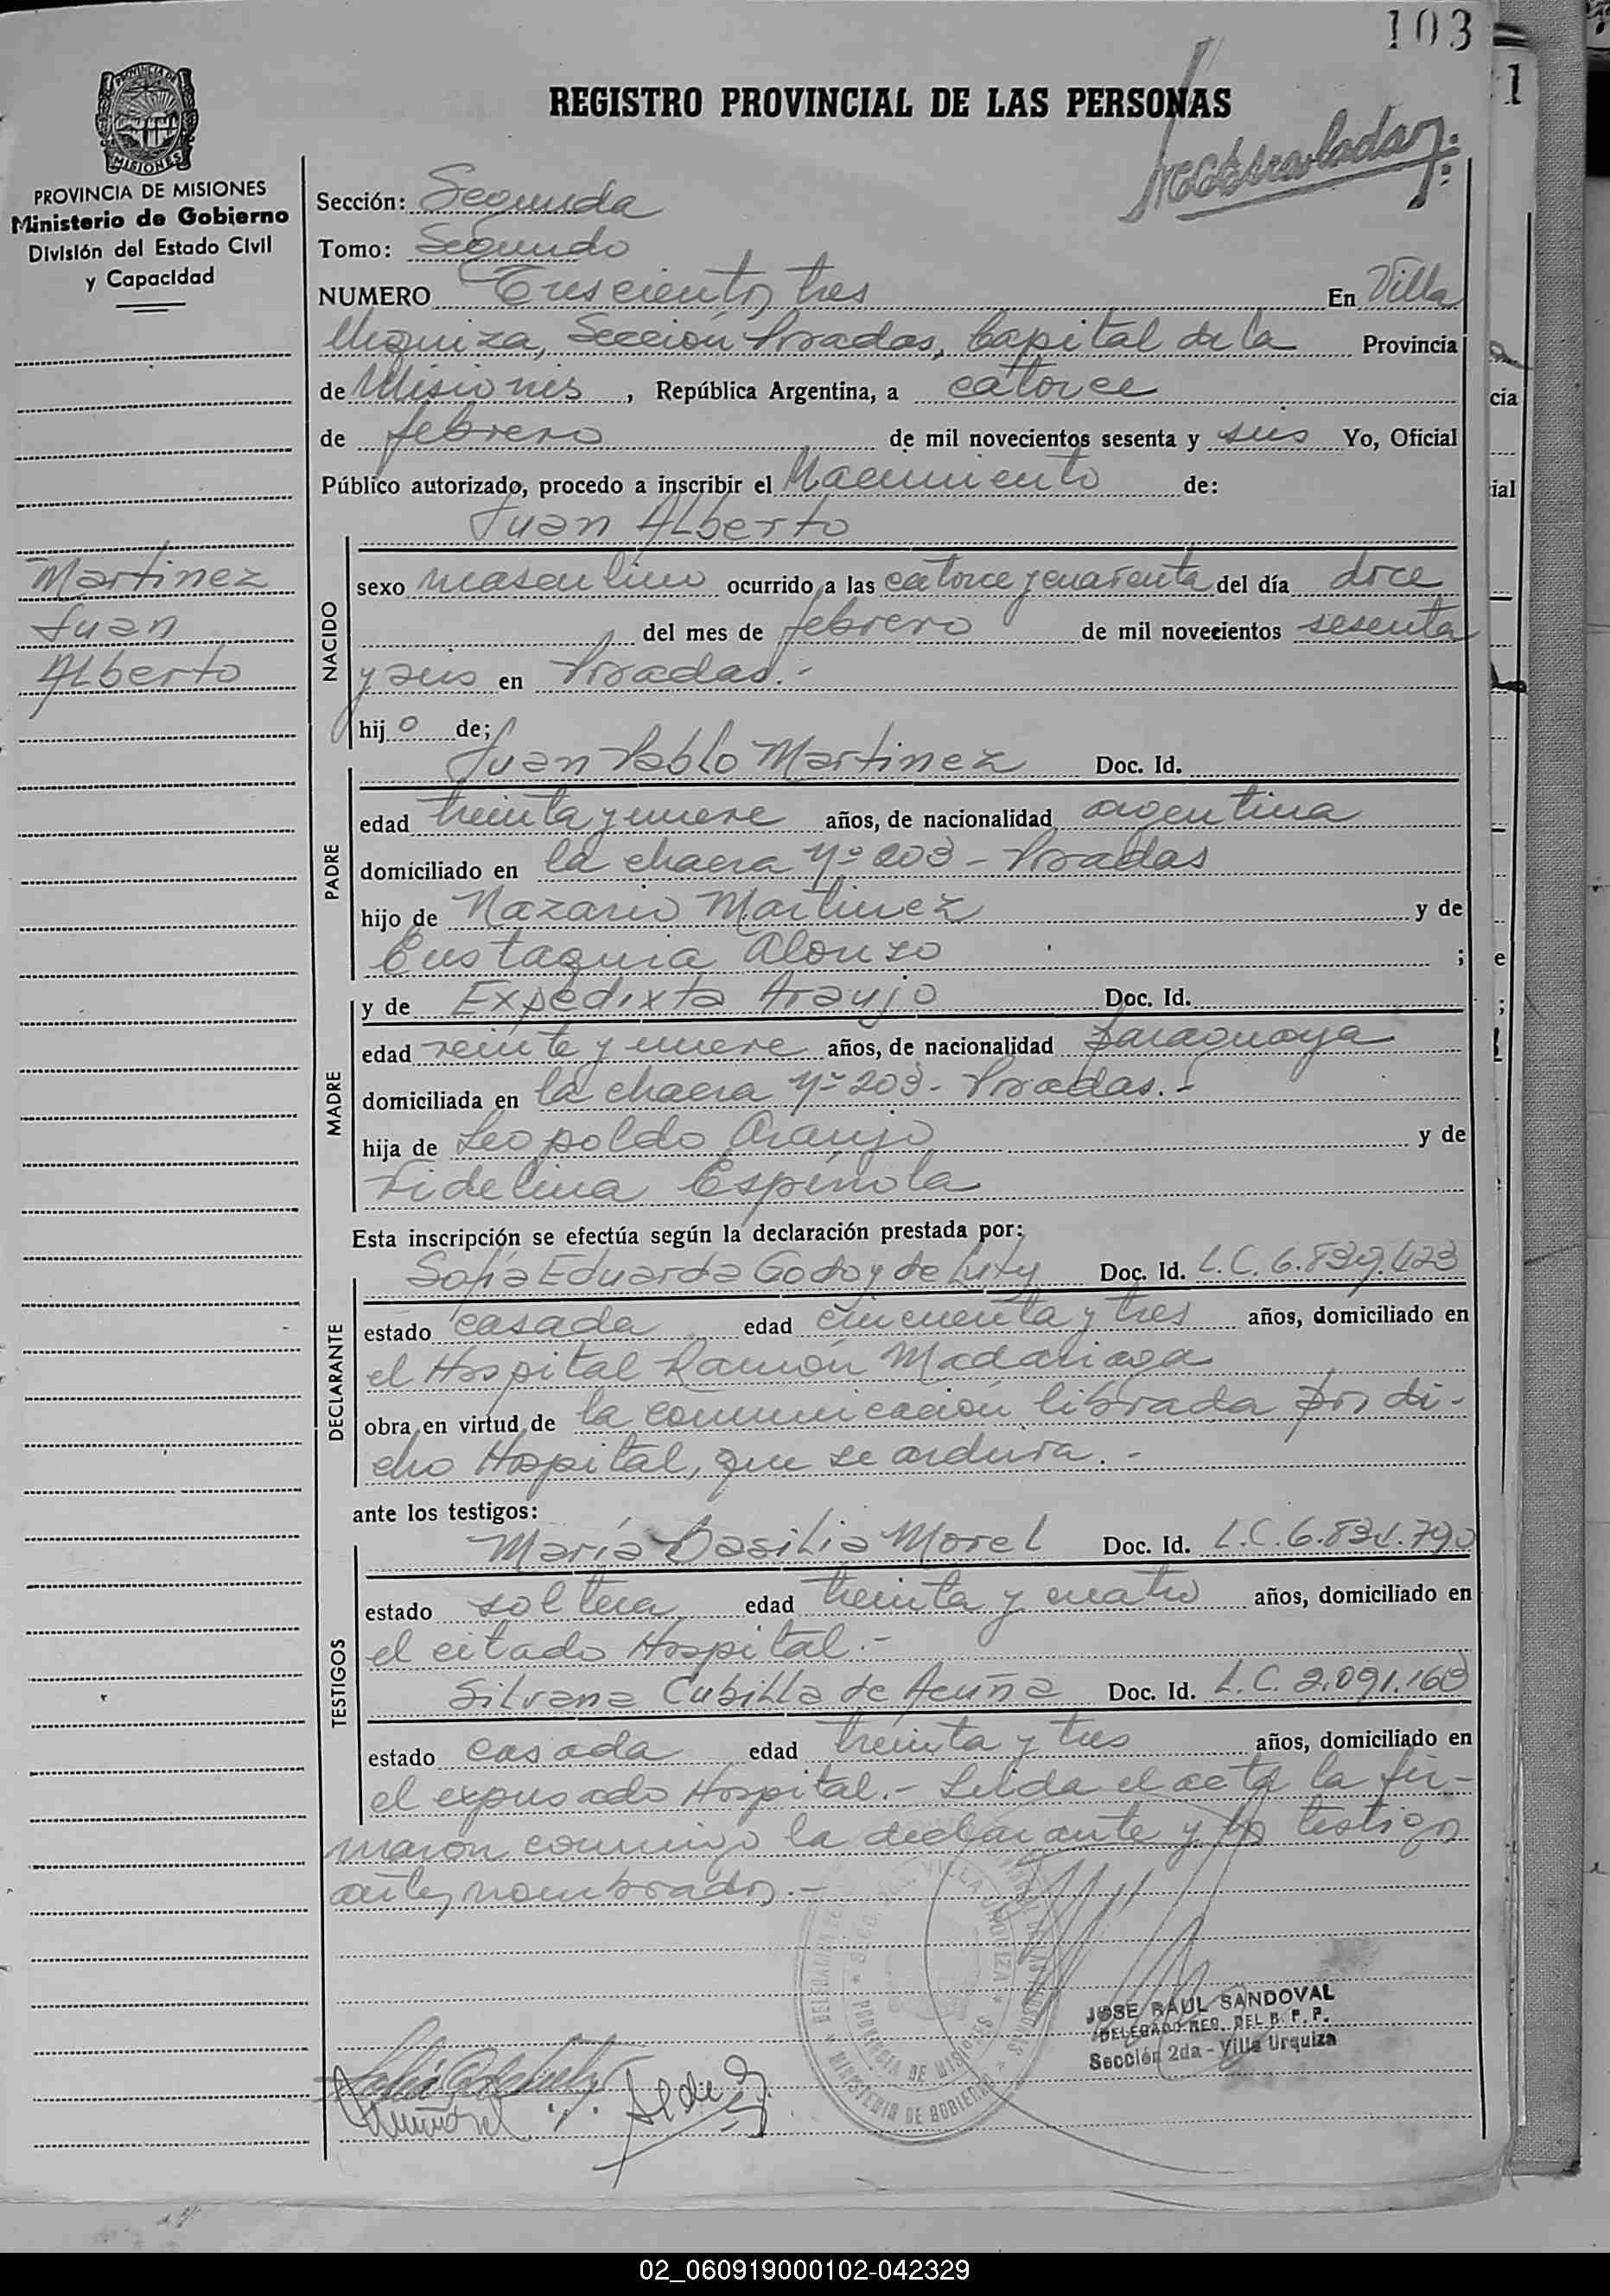 103
1
REGISTRO PROVINCIAL DE LAS PERSONAS
PROVINCIA DE MISIONES
Ministerio de Gobierno
División del Estado Civil
y Capacidad
Sección: Segunda
Tomo: Segundo
NUMERO Trescientos tres En Villa
Urquiza, Sección Posadas, Capital de la Provincia
de Misiones, República Argentina, a catorce
de febrero de mil novecientos sesenta y seis Yo, Oficial
Público autorizado, procedo a inscribir el Nacimiento de:
Juan Alberto
Martinez
Juan
Alberto
NACIDO
sexo masculino ocurrido a las catorce y cuarenta del día doce
del mes de febrero de mil novecientos sesenta
y seis en Posadas.-
hijo de;
Juan Pablo Martinez Doc. Id.
PADRE
edad treinta y nueve años, de nacionalidad argentina
domiciliado en la chacra Nº 203 - Posadas
hijo de Nazario Martinez y de
Eustaquia Alonso ;
y de Expedixta Araujo Doc. Id.
MADRE
edad veinte y nueve años, de nacionalidad paraguaya
domiciliada en la chacra Nº 203 - Posadas.-
hija de Leopoldo Araujo y de
Fidelina Espínola
Esta inscripción se efectúa según la declaración prestada por:
Sofia Eduarda Godoy de Doc. Id. L.C. 6.839.423
DECLARANTE
estado casada edad cincuenta y tres años, domiciliado en
el Hospital Ramón Madariaga
obra en virtud de la comunicación librada por di-
cho Hospital, que se archiva.-
ante los testigos:
María Basilia Morel Doc. Id. L.C. 6.834.790
TESTIGOS
estado soltera edad treinta y cuatro años, domiciliado en
el citado Hospital.-
Silvana Cubilla de Acuña Doc. Id. L.C. 2.091.163
estado casada edad treinta y tres años, domiciliado en
el expresado Hospital.- Leída el acta la fir-
maron conmigo la declarante y los testigos
antes nombrados.-
JOSE RAUL SANDOVAL
DELEGADO REG. DEL R. P. P.
Sección 2da - Villa Urquiza
02_060919000102-042329